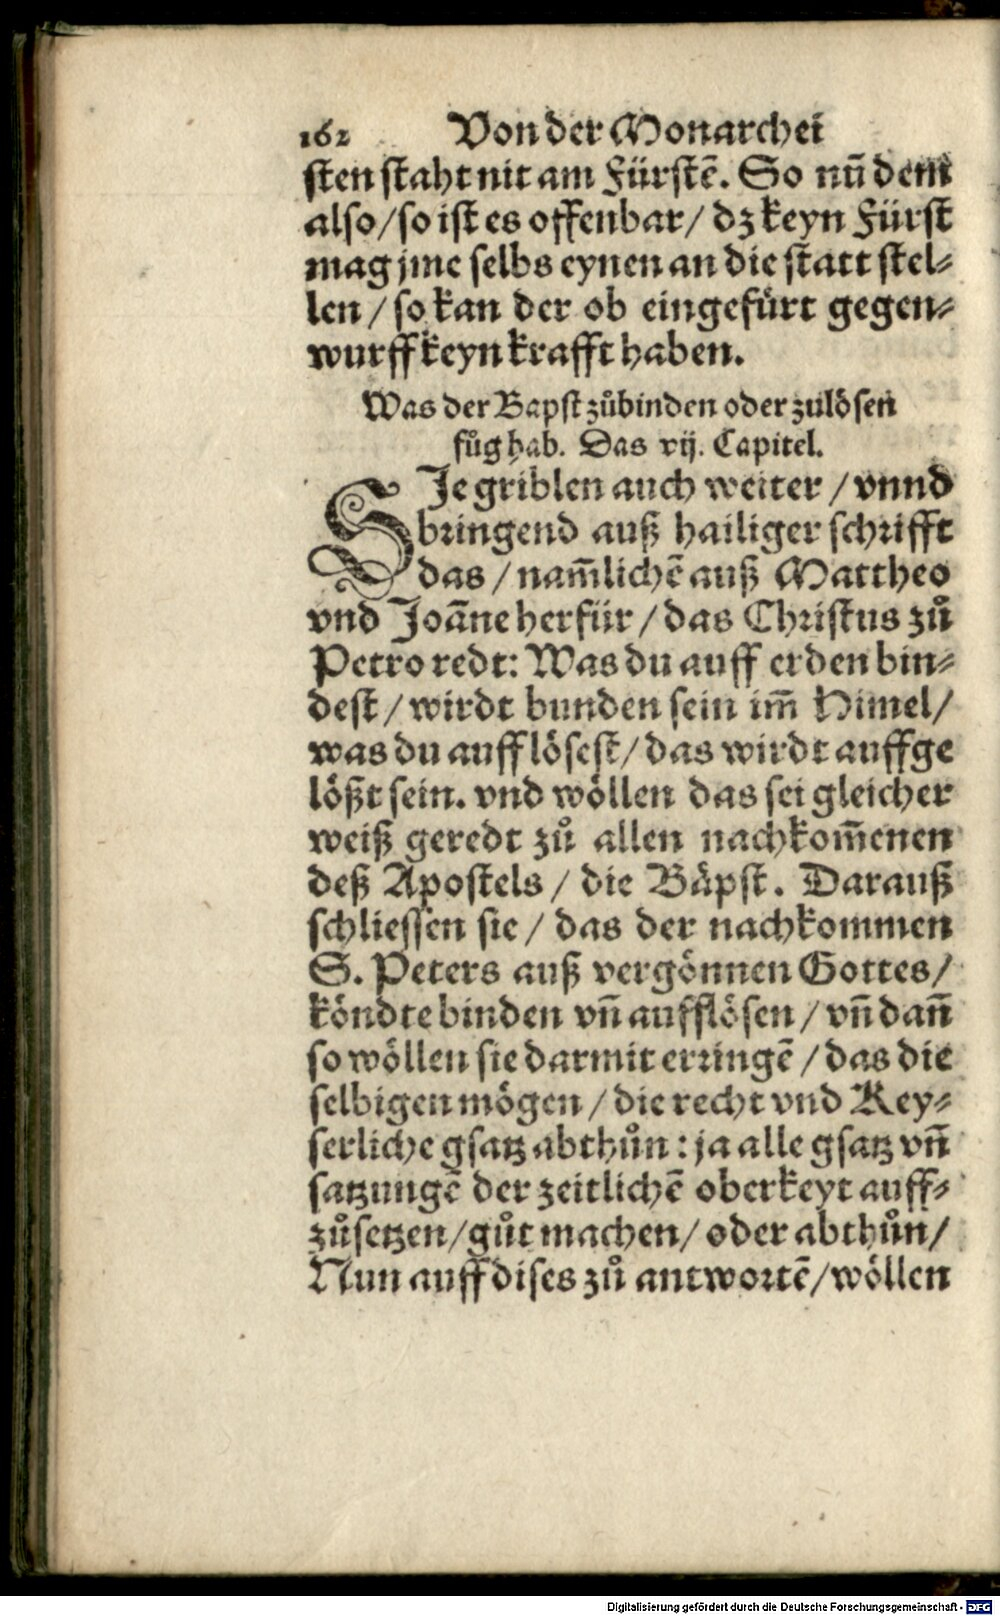 162 Von der Monarchei
sten staht nit am Fürstē. So nuñ dem
also/so ist es offenbar/ dz keyn Fürst
mag jme selbs eynen an die statt stel⸗
len / so kan der ob eingefürt gegen⸗
wurff keyn krafft haben.
Was der Bapst zůbinden oder zulösen
fůg hab. Das vij. Capitel.
SJe griblen auch weiter / vnnd
bringend auß hailiger schrifft
das / nam̃lichē auß Mattheo
vnd Joāne herfür / das Christus zů
Petro redt: Was du auff erden bin⸗
dest / wirdt bunden sein im̃ Himel/
was du aufflösest/ das wirdt auffge
lößt sein. vnd wöllen das sei gleicher
weiß geredt zů allen nachkom̃enen
deß Apostels / die Bäpst. Darauß
schliessen sie / das der nachkommen
S. Peters auß vergönnen Gottes/
köndte binden vñ aufflösen / vñ dañ
so wöllen sie darmit erringē / das die
selbigen mögen / die recht vnd Key⸗
serliche gsatz abthůn : ja alle gsatz vñ
satzungē der zeitlichē oberkeyt auff⸗
zůsetzen/gůt machen/ oder abthůn/
Nun auff dises zů antwortē/wöllen
Digitalisierung gefördert durch die Deutsche Forschungsgemeinschaft - DFG